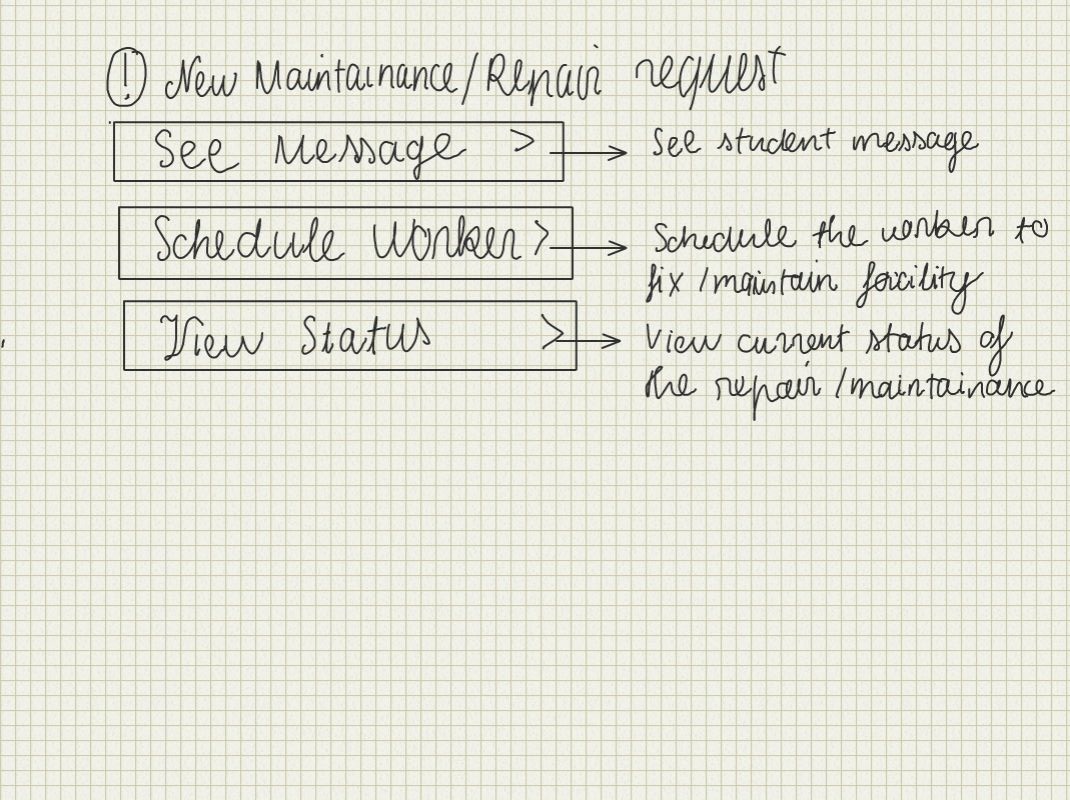 ! New Maintainance/Repair request
See Message > See student message
Schedule Worker > Schedule the worker to
fix/maintain facility
View Status > View current status of
the repair/maintainance